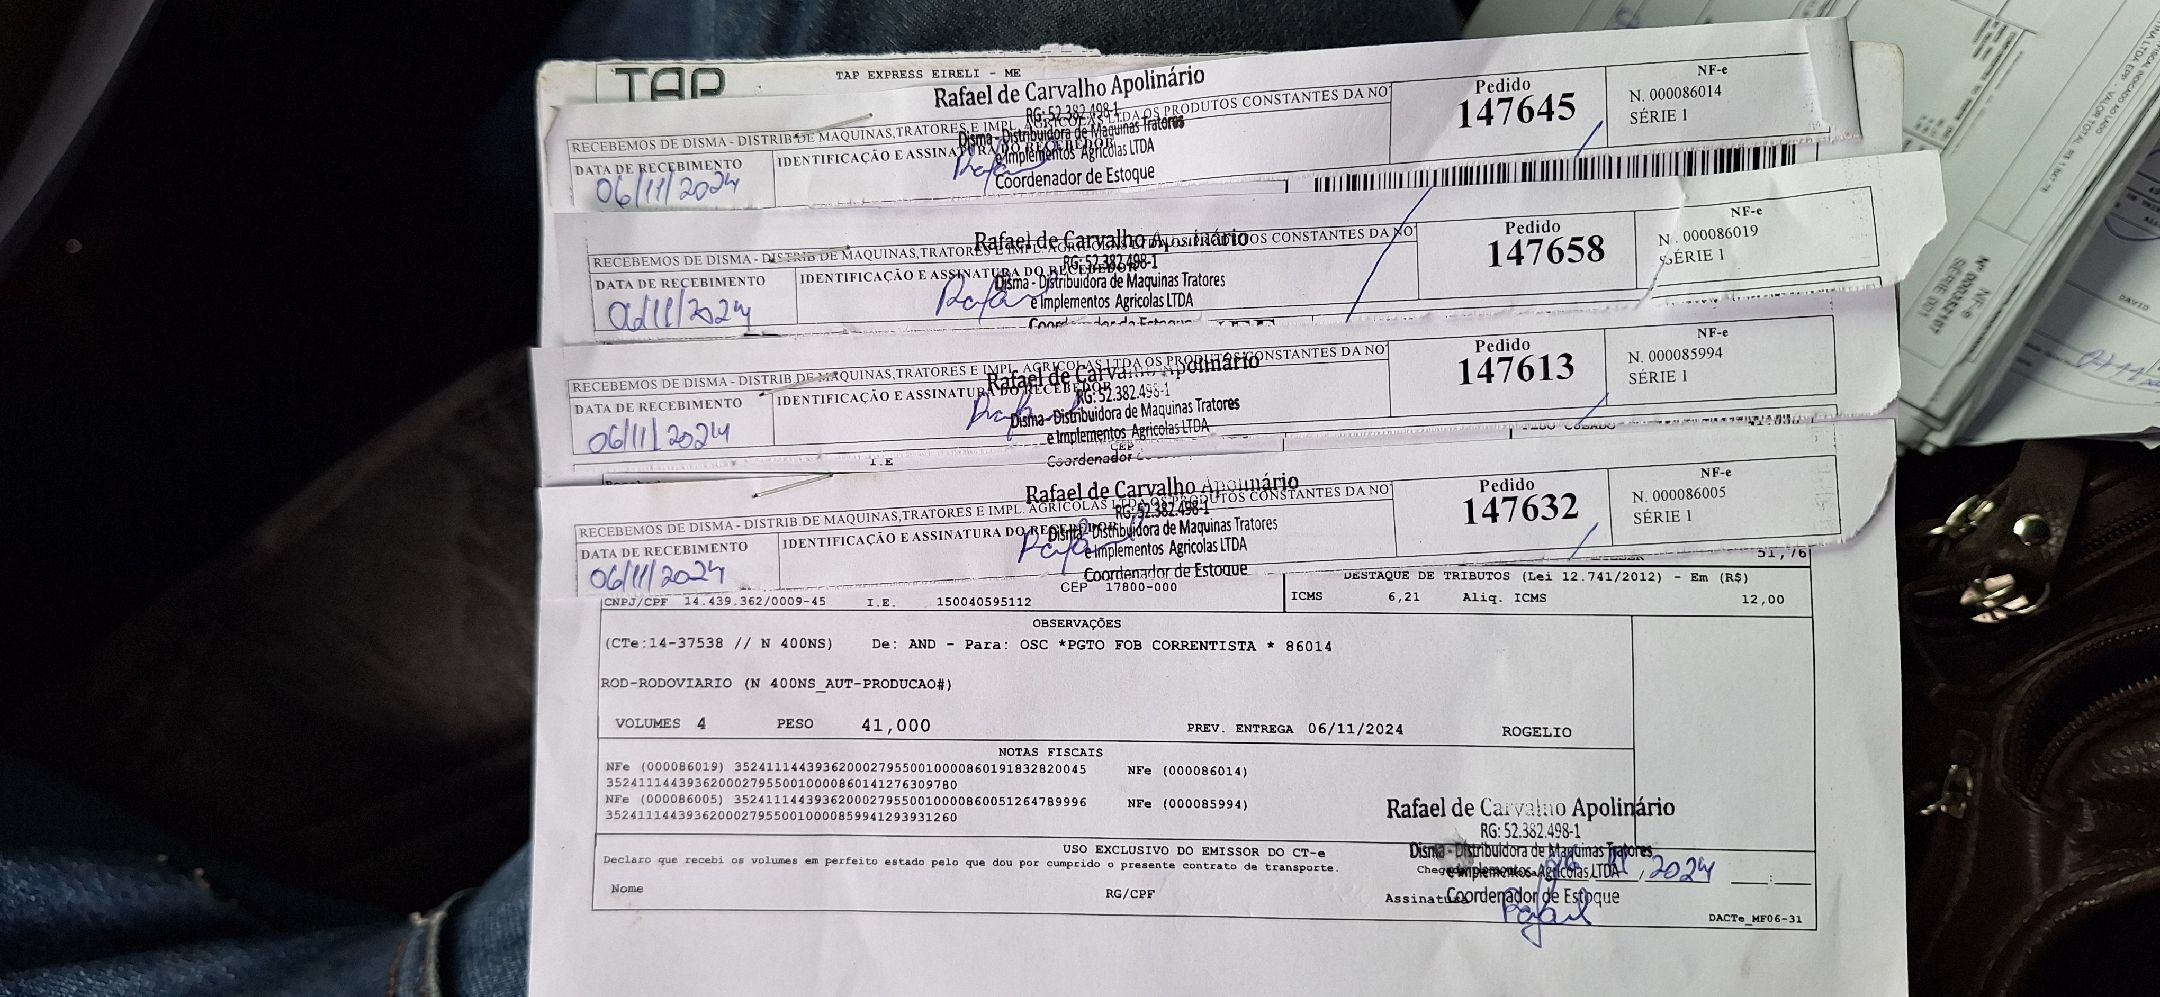 TAP
TAP EXPRESS EIRELI - ME
Rafael de Carvalho Apolinário
RG: 52.382.498-1
RECEBEMOS DE DISMA - DISTRIB DE MAQUINAS,TRATORES E IMPL. AGRICOLAS LTDA OS PRODUTOS CONSTANTES DA NO
Disma - Distribuidora de Maquinas Tratores
e Implementos Agrícolas LTDA
Coordenador de Estoque
DATA DE RECEBIMENTO
IDENTIFICAÇÃO E ASSINATURA DO RECEBEDOR
06/11/2024
Rafael
Pedido
147645
NF-e
N. 000086014
SÉRIE 1
Rafael de Carvalho Apolinário
RG: 52.382.498-1
RECEBEMOS DE DISMA - DISTRIB DE MAQUINAS,TRATORES E IMPL. AGRICOLAS LTDA OS PRODUTOS CONSTANTES DA NO
Disma - Distribuidora de Maquinas Tratores
e Implementos Agrícolas LTDA
DATA DE RECEBIMENTO
IDENTIFICAÇÃO E ASSINATURA DO RECEBEDOR
06/11/2024
Rafael
Pedido
147658
NF-e
N. 000086019
SÉRIE 1
RECEBEMOS DE DISMA - DISTRIB DE MAQUINAS,TRATORES E IMPL. AGRICOLAS LTDA OS PRODUTOS CONSTANTES DA NO
Rafael de Carvalho Apolinário
RG: 52.382.498-1
Disma - Distribuidora de Maquinas Tratores
e Implementos Agrícolas LTDA
Coordenador
DATA DE RECEBIMENTO
IDENTIFICAÇÃO E ASSINATURA DO RECEBEDOR
06/11/2024
Rafael
Pedido
147613
NF-e
N. 000085994
SÉRIE 1
I.E
CEP
Rafael de Carvalho Apolinário
RG: 52.382.498-1
RECEBEMOS DE DISMA - DISTRIB DE MAQUINAS,TRATORES E IMPL. AGRICOLAS LTDA OS PRODUTOS CONSTANTES DA NO
Disma - Distribuidora de Maquinas Tratores
e Implementos Agrícolas LTDA
Coordenador de Estoque
DATA DE RECEBIMENTO
IDENTIFICAÇÃO E ASSINATURA DO RECEBEDOR
06/11/2024
Rafael
Pedido
147632
NF-e
N. 000086005
SÉRIE 1
51,76
CEP 17800-000
DESTAQUE DE TRIBUTOS (Lei 12.741/2012) - Em (R$)
CNPJ/CPF 14.439.362/0009-45 I.E. 150040595112
ICMS 6,21 Aliq. ICMS 12,00
OBSERVAÇÕES
(CTe:14-37538 // N 400NS) De: AND - Para: OSC *PGTO FOB CORRENTISTA * 86014
ROD-RODOVIARIO (N 400NS_AUT-PRODUCAO#)
VOLUMES 4 PESO 41,000 PREV. ENTREGA 06/11/2024 ROGELIO
NOTAS FISCAIS
NFe (000086019) 35241114439362000279550010000860191832820045 NFe (000086014)
35241114439362000279550010000860141276309780
NFe (000086005) 35241114439362000279550010000860051264789996 NFe (000085994)
35241114439362000279550010000859941293931260
Rafael de Carvalho Apolinário
RG: 52.382.498-1
Disma - Distribuidora de Maquinas Tratores
e Implementos Agrícolas LTDA
Coordenador de Estoque
USO EXCLUSIVO DO EMISSOR DO CT-e
Declaro que recebi os volumes em perfeito estado pelo que dou por cumprido o presente contrato de transporte.
06 11 2024
Nome
RG/CPF
Rafael
DACTe_MF06-31
NF-e
Nº 000352107
SÉRIE 001
DAVID
VALOR TOTAL